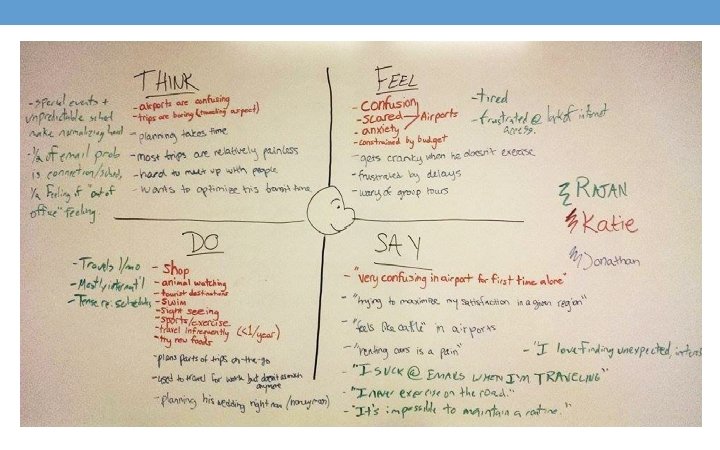 THINK
- special events +
unpredictable sched
make normalizing hard
- 1/2 of email prob
is connection/sched,
1/2 feeling of "out of
office" feeling.
- airports are confusing
- trips are boring (traveling aspect)
- planning takes time
- most trips are relatively painless
- hard to meet up with people
- wants to optimize his time
FEEL
- confusion
- scared > Airports
- anxiety
- constrained by budget
- gets cranky when he doesn't exercise
- frustrated by delays
- wary of group tours
- tired
- frustrated @ lack of internet
access.
RAJAN
Katie
Jonathan
DO
- Travels 1/mo
- Mostly internat'l
- Tense re: schedules
- shop
- animal watching
- tourist destinations
- swim
- sight seeing
- sports/exercise
- travel infrequently (<1/year)
- try new foods
- plans parts of trips on-the-go
- used to travel for work but doesn't as much
anymore
- planning his wedding right now (honeymoon)
SAY
- "very confusing in airport for first time alone"
- "trying to maximize my satisfaction in a given region"
- "feels like cattle" in airports
- "renting cars is a pain"
- "I love finding unexpected
- "I SUCK @ EMAILS WHEN I'M TRAVELING"
- "I never exercise on the road."
- "It's impossible to maintain a routine."